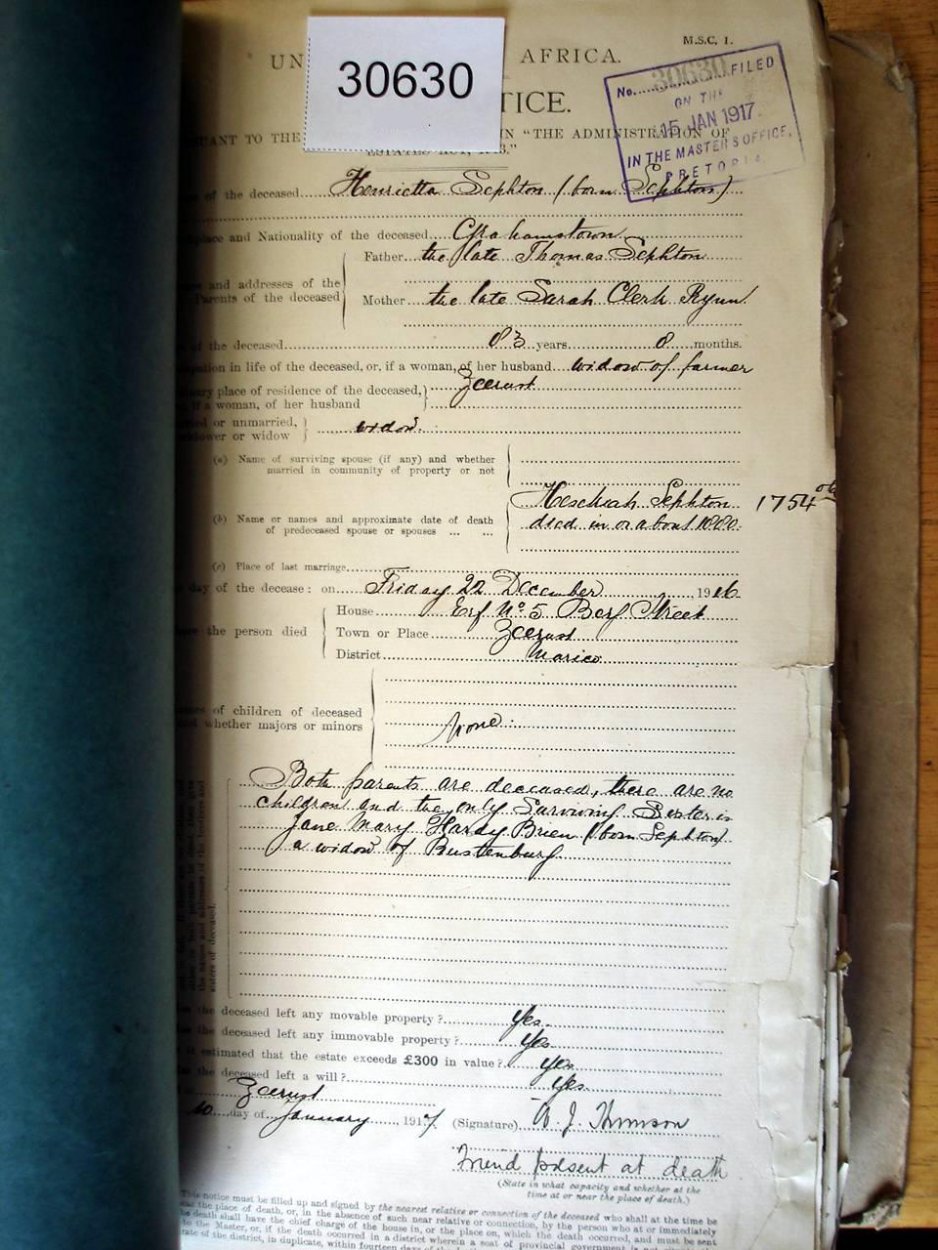 M.S.C. 1.
UN AFRICA.
30630
No. 30630 FILED
ON THE
15 JAN 1917
IN THE MASTER'S OFFICE,
PRETORIA
TICE.
SUANT TO THE IN "THE ADMINISTRATION OF
ESTATES ACT,
of the deceased Henrietta Sephton (born Sephton)
place and Nationality of the deceased Grahamstown
Father the late Thomas Sephton
and addresses of the
Parents of the deceased
Mother the late Sarah Clerk Rynn
of the deceased 83 years 8 months.
pation in life of the deceased, or, if a woman, of her husband widow of farmer
nary place of residence of the deceased, Zeerust
if a woman, of her husband
ied or unmarried, widow
dower or widow
(a) Name of surviving spouse (if any) and whether
married in community of property or not
Heschiah Sephton 1754
(b) Name or names and approximate date of death died in or about 1880
of predeceased spouse or spouses ... ...
(c) Place of last marriage
day of the decease: on Friday 22 December 1916
House Erf No 5 Street
re the person died Town or Place Zeerust
District Marico
mes of children of deceased
d whether majors or minors None
Both parents are deceased, there are no
children and the only Surviving Sister is
Jane Mary Hardy Brien (born Sephton)
a widow of Rustenburg
the deceased left any movable property? Yes
the deceased left any immovable property? Yes
it estimated that the estate exceeds £300 in value? yes
the deceased left a will? Yes
Zeerust
10 day of January 1917 (Signature) A. J. Thomson
Friend present at death
(State in what capacity and whether at the
time at or near the place of death.)
This notice must be filled up and signed by the nearest relative or connection of the deceased who shall at the time be
the place of death, or, in the absence of such near relative or connection, by the person who at or immediately
the death shall have the chief charge of the house in, or the place on, which the death occurred, and must be sent
to the Master, or, if the death occurred in a district wherein a seat of provincial government is not
rate of the district, in duplicate, within fourteen days of the